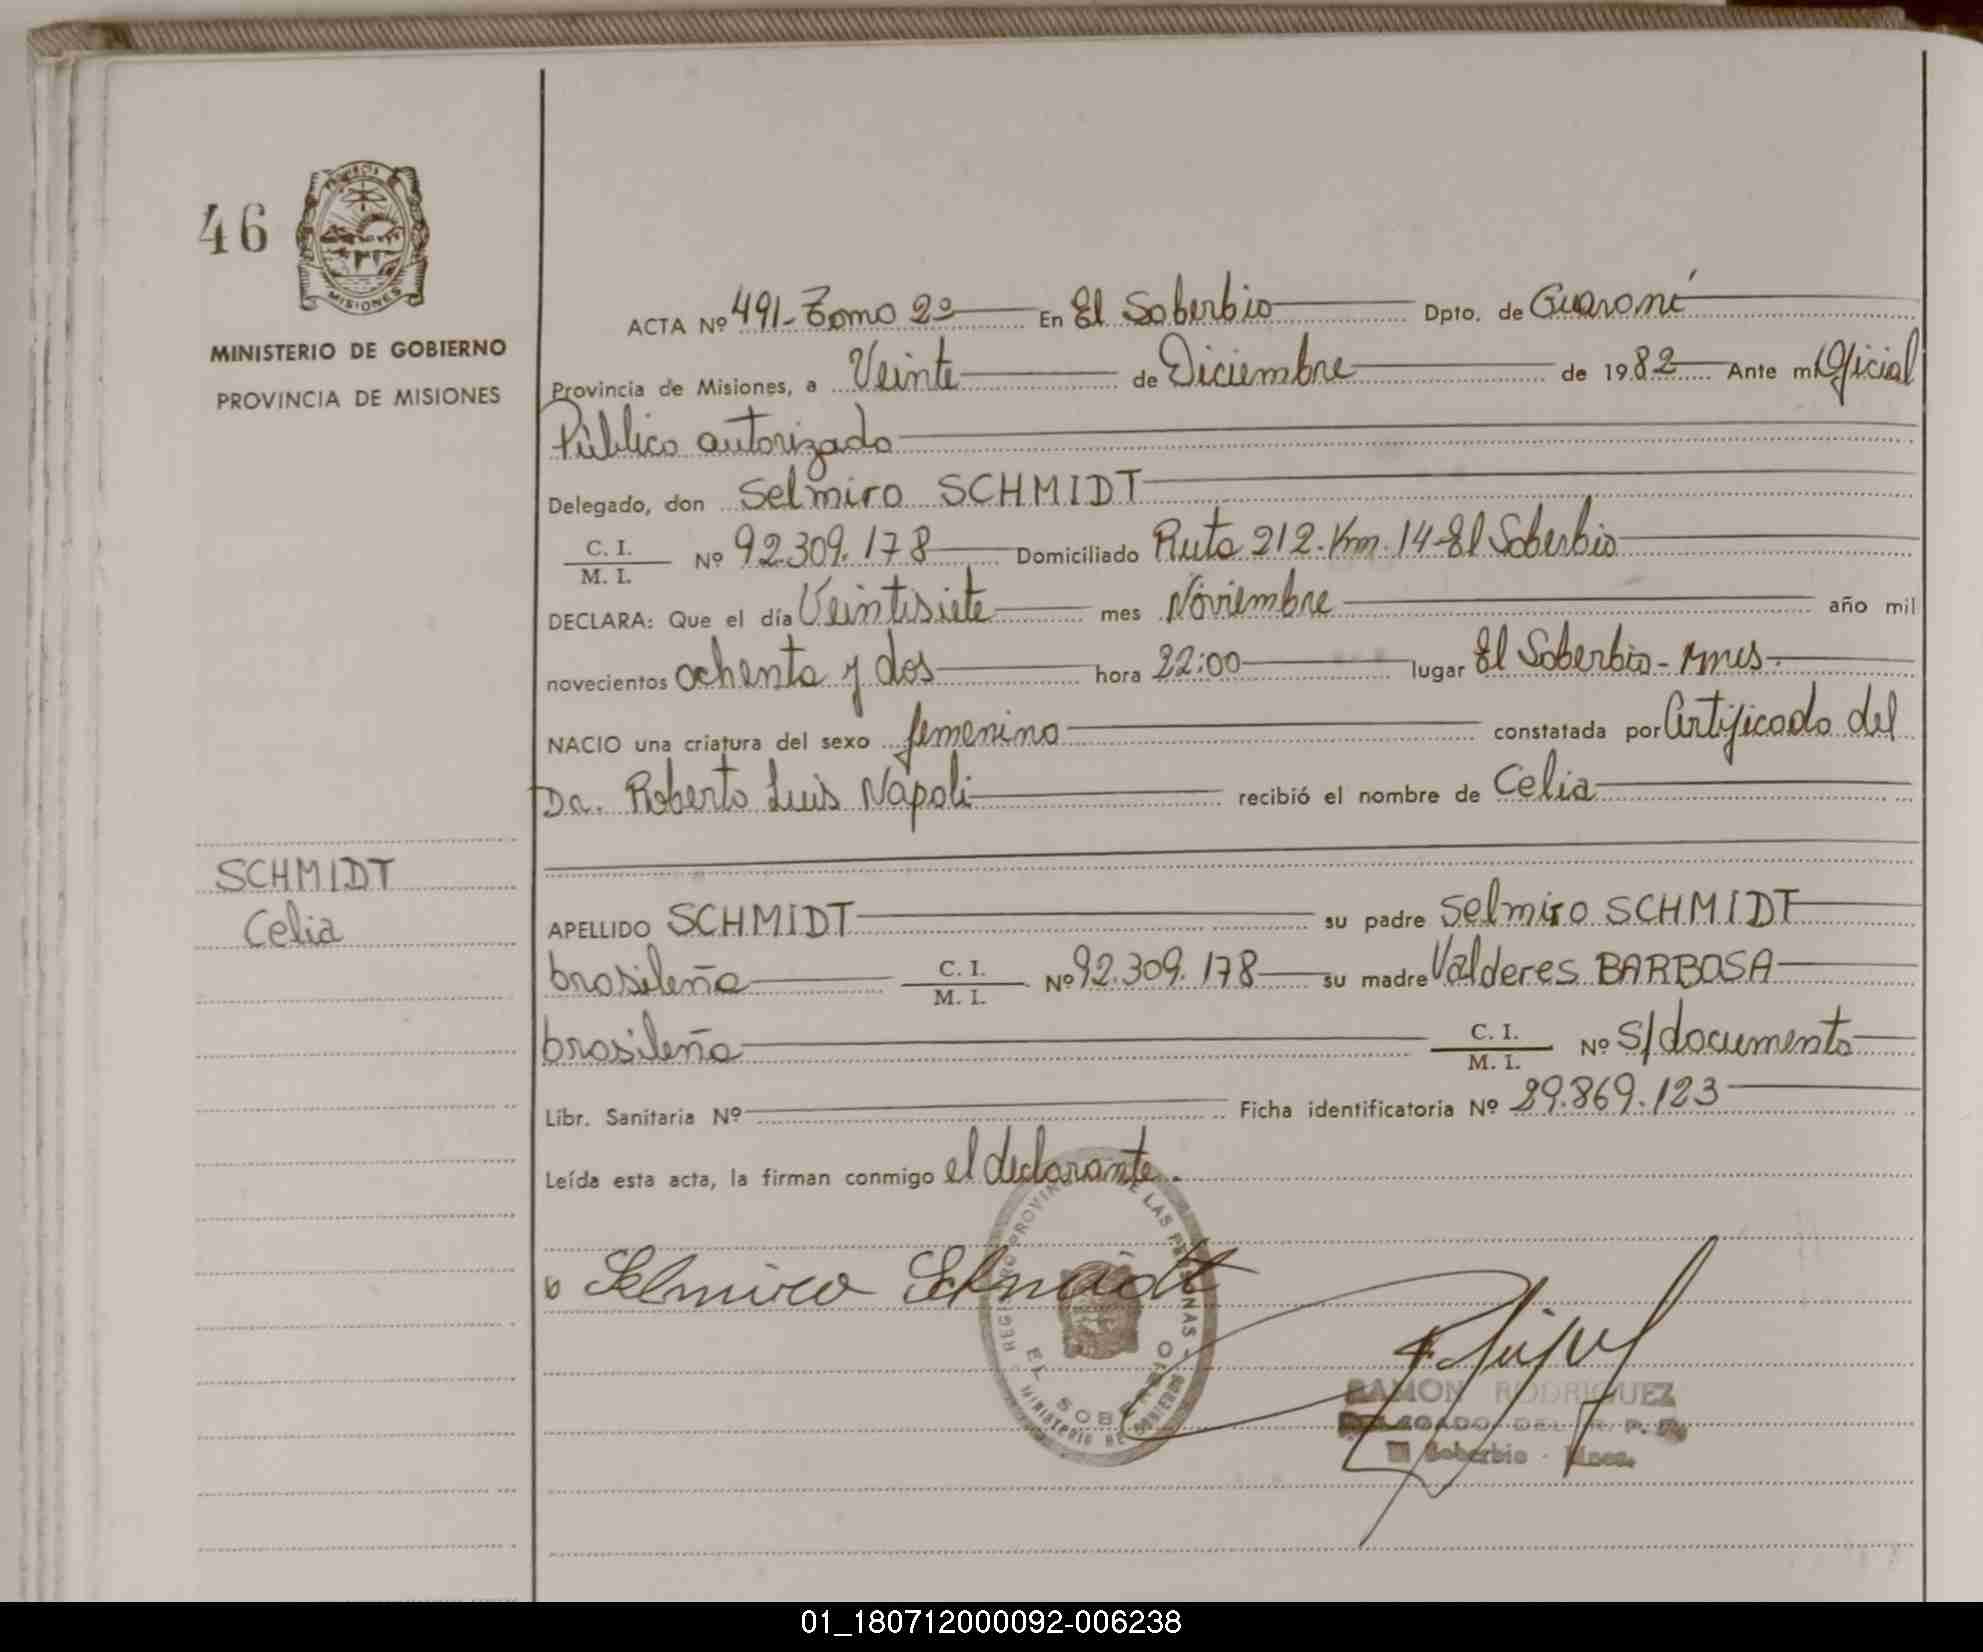 46
MISIONES
MINISTERIO DE GOBIERNO
PROVINCIA DE MISIONES
ACTA Nº 491-Tomo 2º En El Soberbio Dpto. de Guaraní
Provincia de Misiones, a Veinte de Diciembre de 1982 Ante mí Oficial
Público autorizado
Delegado, don Selmiro SCHMIDT
C. I.
M. I. Nº 92.309.178 Domiciliado Ruta 212-Km.14-El Soberbio
DECLARA: Que el día Veintisiete mes Noviembre año mil
novecientos ochenta y dos hora 22:00 lugar El Soberbio - Mnes.
NACIO una criatura del sexo femenino constatada por Certificado del
Dr. Roberto Luis Napoli recibió el nombre de Celia
SCHMIDT
Celia
APELLIDO SCHMIDT su padre Selmiro SCHMIDT
brasileña C. I.
M. I. Nº 92.309.178 su madre Valderes BARBOSA
brasileña C. I.
M. I. Nº S/documento
Libr. Sanitaria Nº Ficha identificatoria Nº 29.869.123
Leída esta acta, la firman conmigo el declarante.
Selmiro Schmidt
REGISTRO PROVINCIAL DE LAS PERSONAS
EL SOBERBIO
MINISTERIO DE GOBIERNO
RAMON RODRIGUEZ
DELEGADO DEL R. P. P.
El Soberbio - Mnes.
01_180712000092-006238